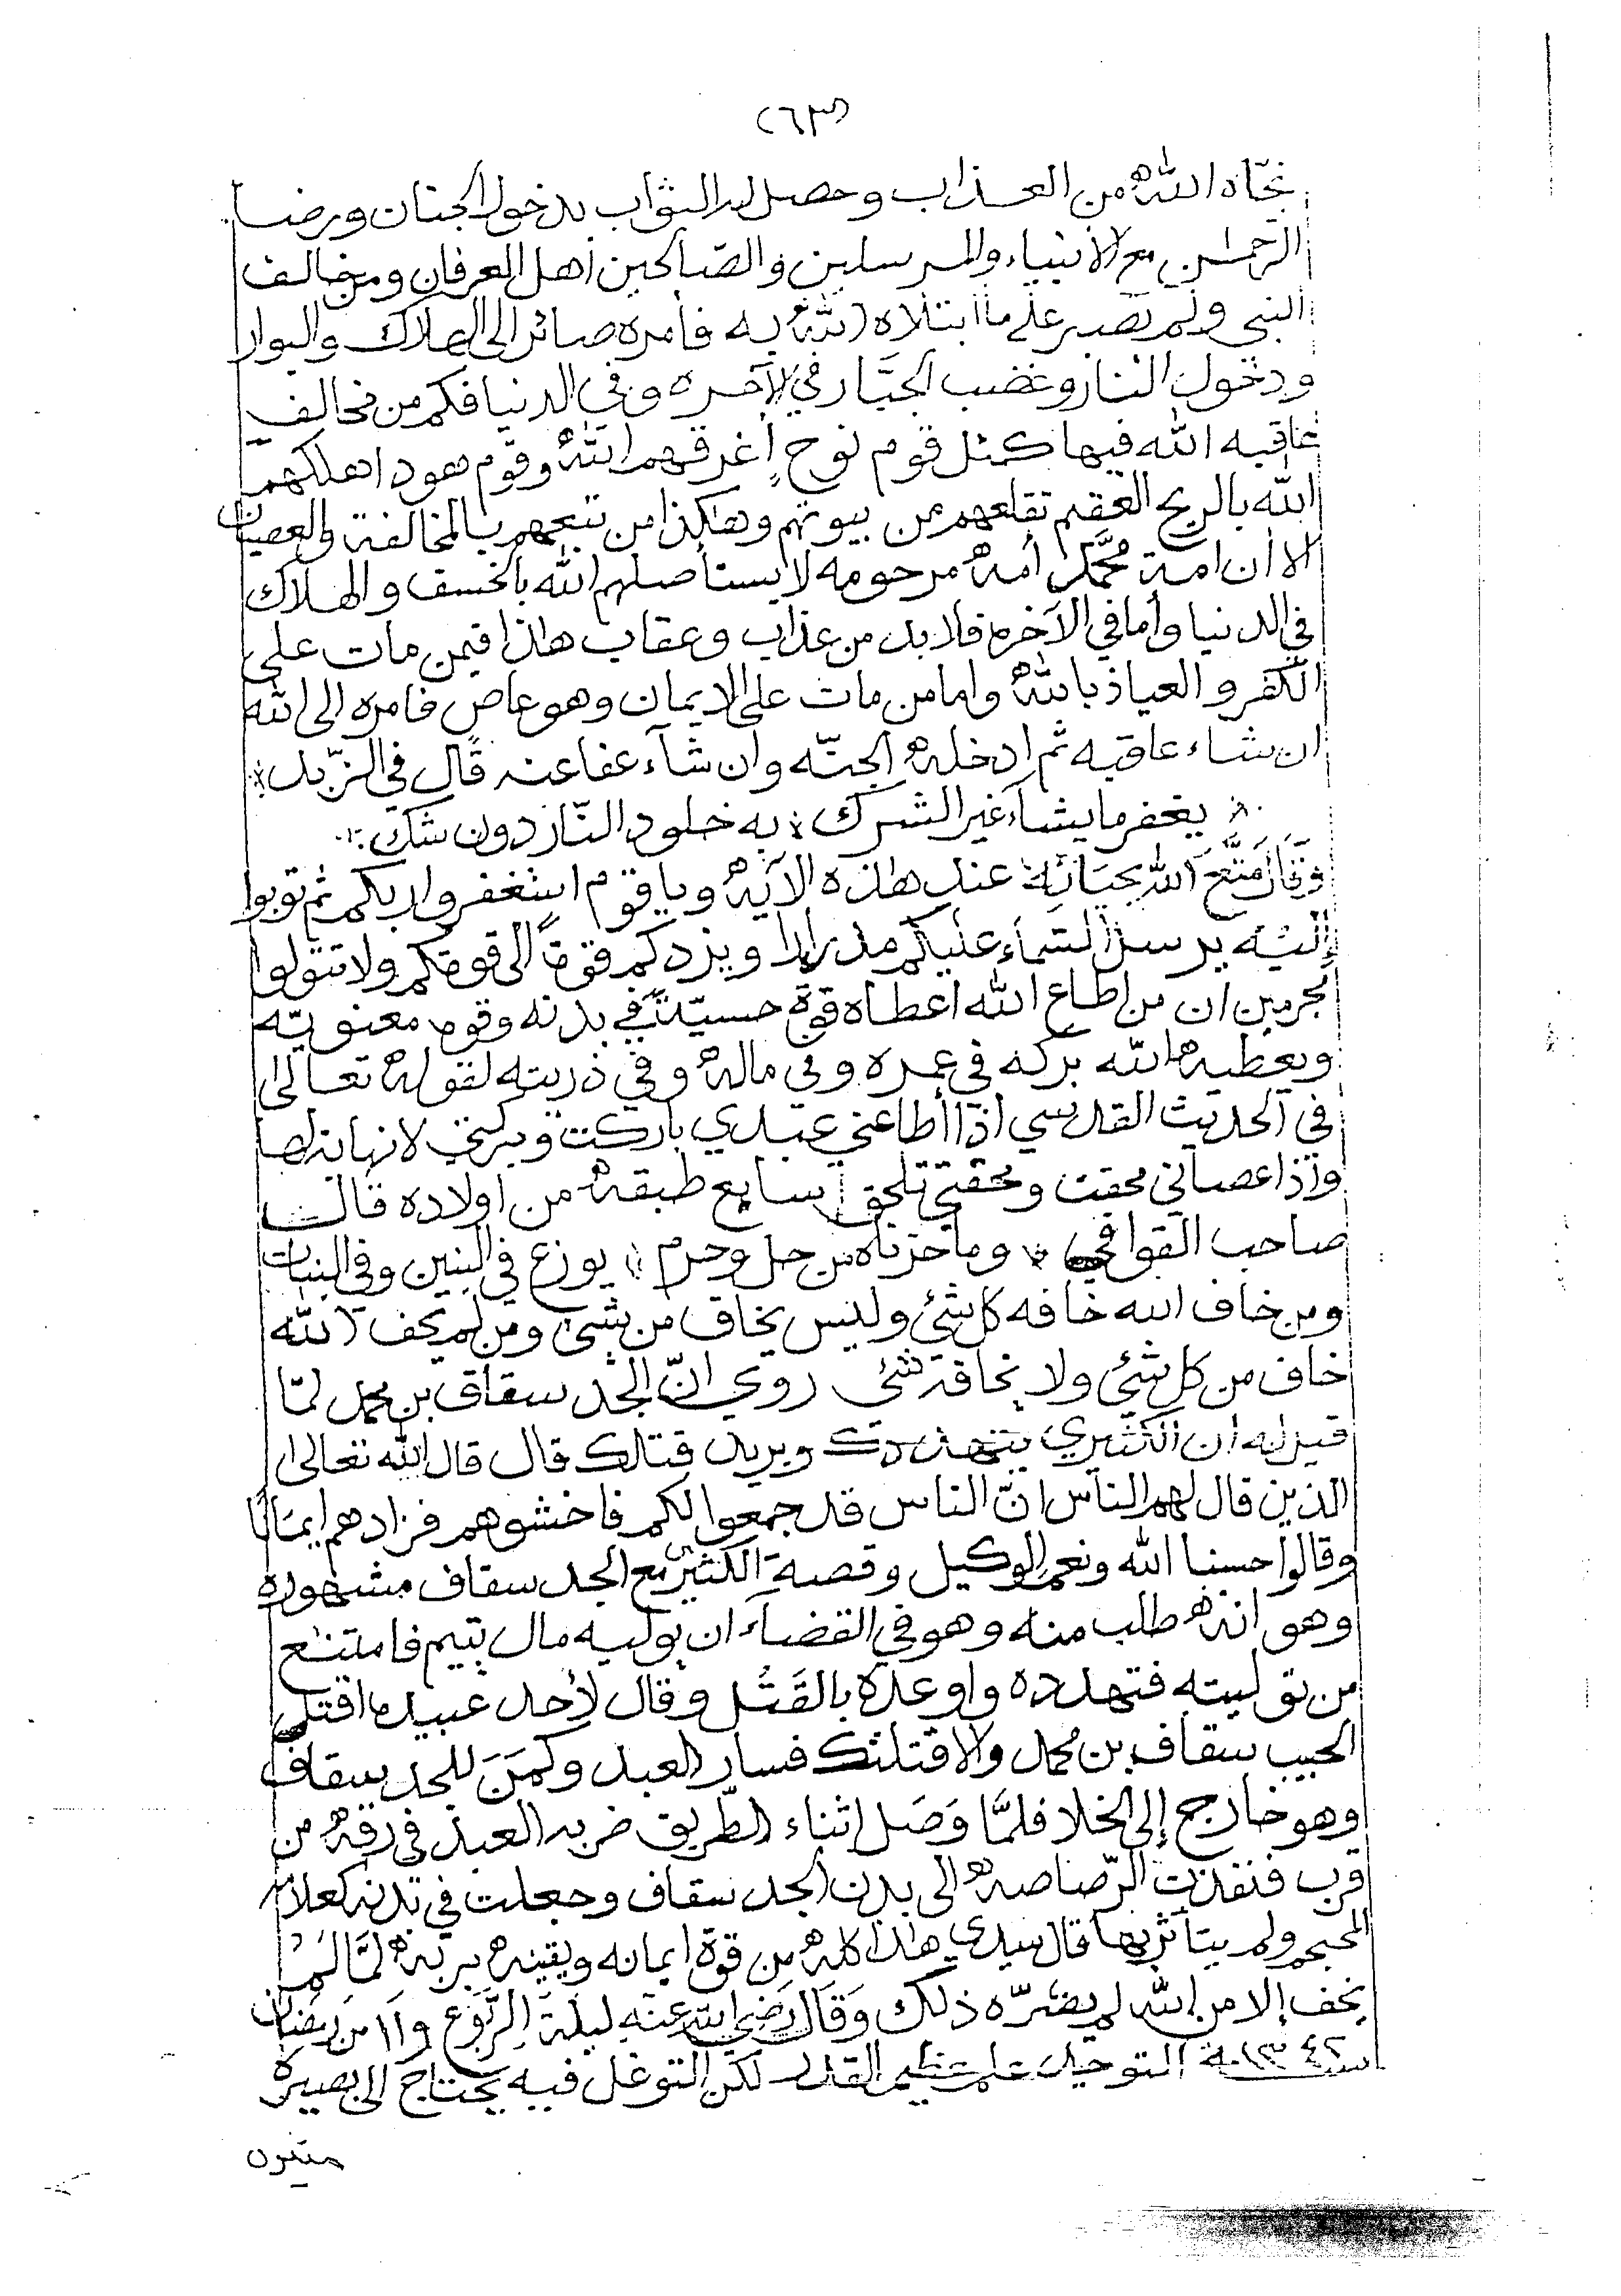 (٦٣)
نجّاه الله من العذاب وحصل له الثواب بدخول الجنان ورضا
الرحمٰن مع الأنبياء والمرسلين والصّالحين أهل العرفان ومن خالف
النبي ولم يصبر على ما ابتلاه الله به فأمره صائر إلى الهلاك والبوار
ودخول النار وغضب الجبّار في الآخره وفي الدنيا فكم من مخالف
عاقبه الله فيها كمثل قوم نوحٍ أغرقهم الله وقوم هود اهلكهم
الله بالريح العقيم تقلعهم من بيوتهم وهاكذا من تبعهم بالمخالفة والعصيان
الا أن امة محمّد أمة مرحومه لا يستأصلهم الله بالخسف والهلاك
في الدنيا وأما في الآخره فلا بد من عذاب وعقاب هاذا فيمن مات على
الكفر والعياذ بالله واما من مات على الايمان وهو عاص فامره الى الله
ان شاء عاقبه ثم ادخله الجنّه وان شآء عفا عنه قال في الزّبد :
يغفر ما يشاء غير الشرك ؛ به خلود النّار دون شك :.
وقال متّع الله بحياته عند هاذه الآيه ويا قوم استغفروا ربكم ثم توبوا
إليه يرسل السّماء عليكم مدرارا ويزدكم قوةً الى قوتكم ولا تتولوا
مجرمين ان من اطاع الله اعطاه قوة حسيّة في بدنه وقوه معنويّه
ويعطيه الله بركه في عمره وفي ماله وفي ذريته لقوله تعالى
في الحديث القدسي اذا أطاعني عبدي باركت وبركتي لا نهاية لها
واذا عصاني محقت ومحقتي تلحق سابع طبقه من اولاده قال
صاحب القوافي ؛ وما حزناه من حل وحرم ؛ يوزع في البنين وفي البنات
ومن خاف الله خافه كل شئ وليس يخاف من شئ ومن لم يخف الله
خاف من كل شئ ولا يخافه شئ روي انّ الجد سقاف بن محمد لمّا
قيل له ان الكثيري يتهددك ويريد قتلك قال قال الله تعالى
الذين قال لهم الناس انّ الناس قد جمعوا لكم فاخشوهم فزادهم ايمانًا
وقالوا حسبنا الله ونعم الوكيل وقصة الكثيري مع الجد سقاف مشهوره
وهو انه طلب منه وهو في القضاء ان يوليه مال يتيم فامتنع
من توليته فتهدده واوعده بالقتل وقال لأحد عبيده اقتل
الحبيب سقاف بن محمد والا قتلتك فسار العبد وكمَنَ للجد سقاف
وهو خارج إلى الخلا فلمّا وَصَل اثناء الطّريق ضربه العبد في رقبه من
قرب فنفذت الرّصاصه الى بدن الجد سقاف وجعلت في بدنه كعلامة
المحجم ولم يتأثر بها قال سيدي هاذا كله من قوة ايمانه ويقينه بربه لمّا لمْ
يخف إلا من الله لم يضرّه ذلك وَقَال رَضي الله عنه ليلة الرّبوع و١١ من رمضان
سنة ١٣٤٢ التوحيد علم عظيم القدر لكن التوغل فيه يحتاج الى بصيرة